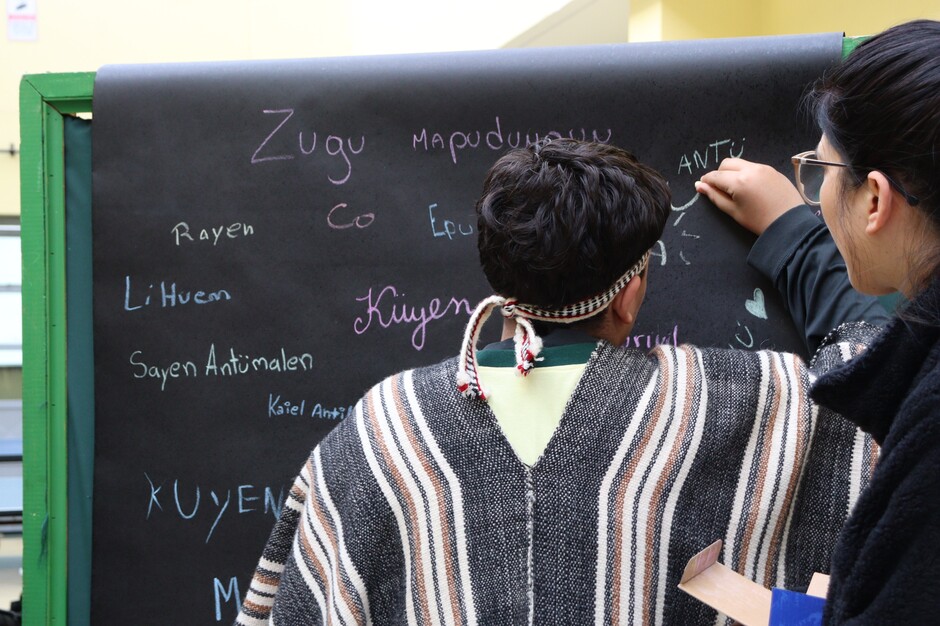 Zugu MAPUDUNGUN
ANTÜ
Rayen Co Epu
LiHuem
Küyen
Sayen Antümalen
Kaiel
KUYEN